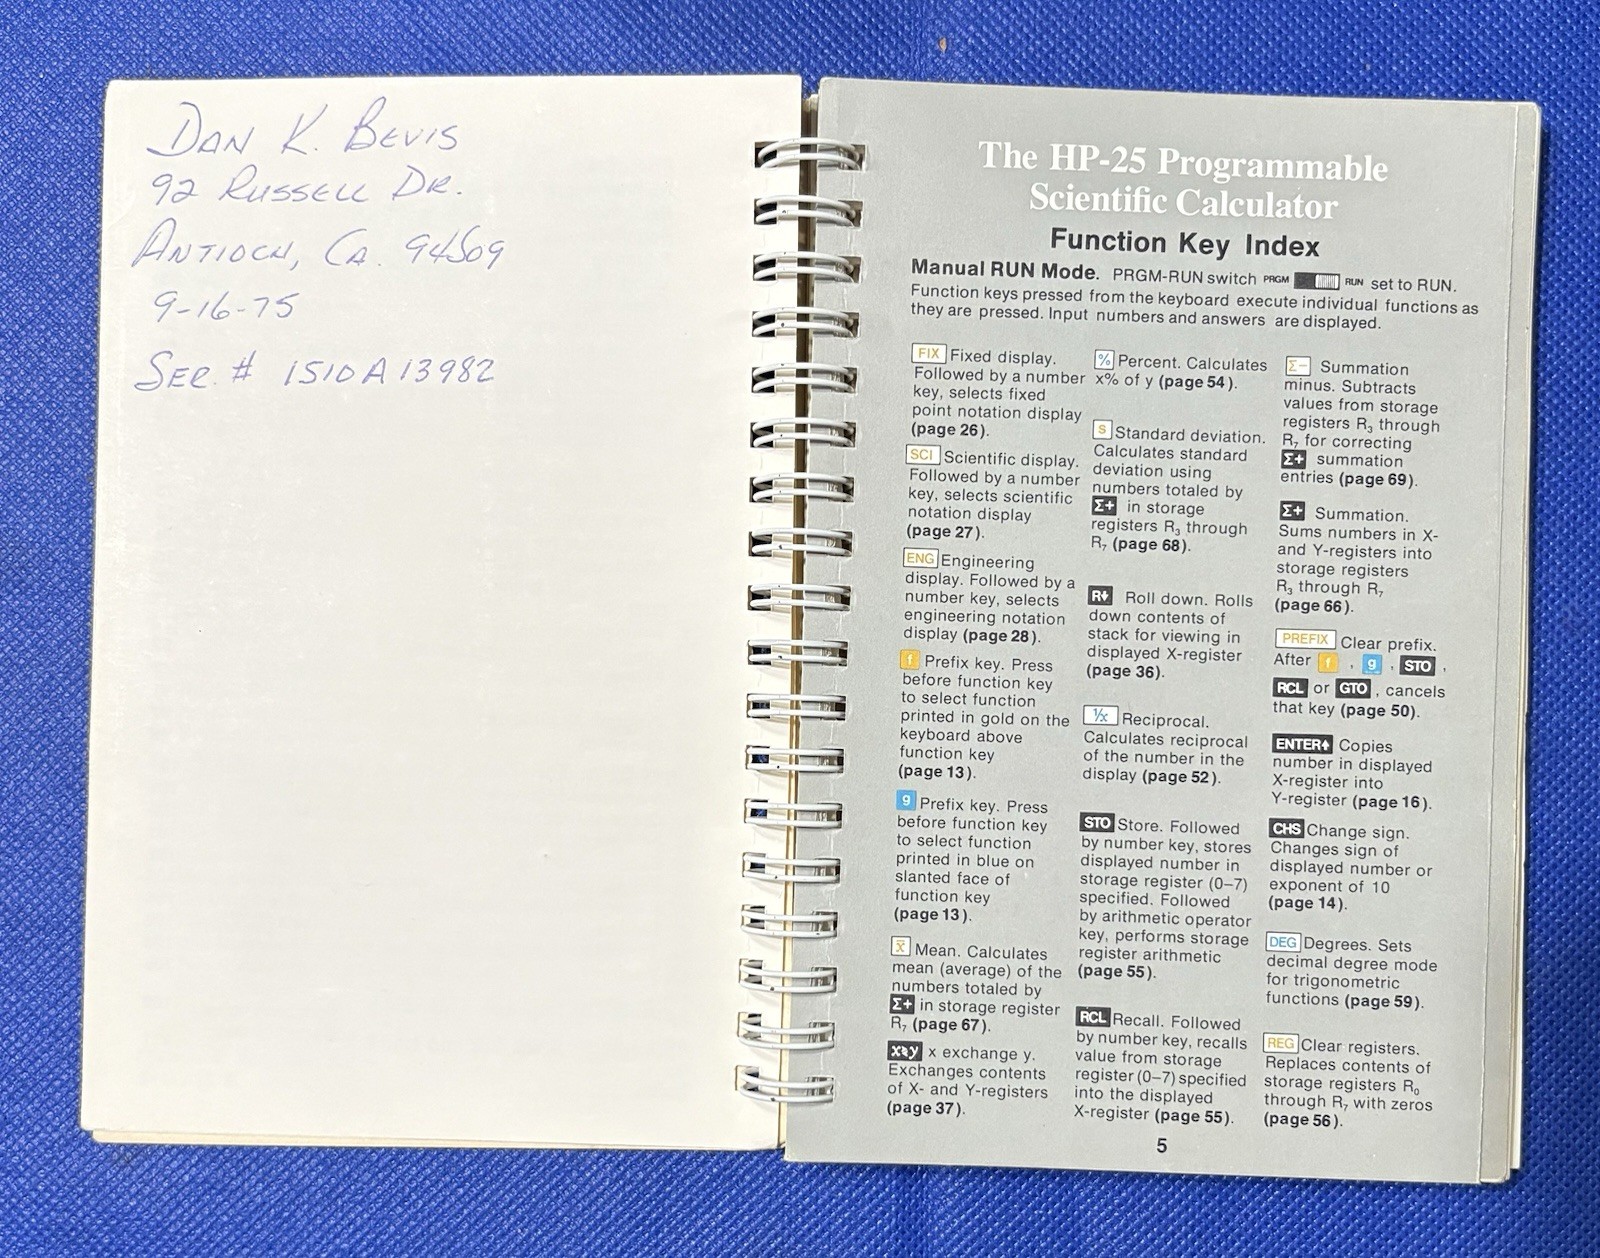 DAN K. BEVIS
92 RUSSELL DR.
ANTIOCH, CA. 94509
9-16-75
SER. # 1510A13982
The HP-25 Programmable
Scientific Calculator
Function Key Index
Manual RUN Mode. PRGM-RUN switch PRGM RUN set to RUN.
Function keys pressed from the keyboard execute individual functions as
they are pressed. Input numbers and answers are displayed.
FIX Fixed display.
Followed by a number
key, selects fixed
point notation display
(page 26).
SCI Scientific display.
Followed by a number
key, selects scientific
notation display
(page 27).
ENG Engineering
display. Followed by a
number key, selects
engineering notation
display (page 28).
f Prefix key. Press
before function key
to select function
printed in gold on the
keyboard above
function key
(page 13).
g Prefix key. Press
before function key
to select function
printed in blue on
slanted face of
function key
(page 13).
x̄ Mean. Calculates
mean (average) of the
numbers totaled by
Σ+ in storage register
R₇ (page 67).
x⇄y x exchange y.
Exchanges contents
of X- and Y-registers
(page 37).
% Percent. Calculates
x% of y (page 54).
S Standard deviation.
Calculates standard
deviation using
numbers totaled by
Σ+ in storage
registers R₃ through
R₇ (page 68).
R↓ Roll down. Rolls
down contents of
stack for viewing in
displayed X-register
(page 36).
1/x Reciprocal.
Calculates reciprocal
of the number in the
display (page 52).
STO Store. Followed
by number key, stores
displayed number in
storage register (0–7)
specified. Followed
by arithmetic operator
key, performs storage
register arithmetic
(page 55).
RCL Recall. Followed
by number key, recalls
value from storage
register (0–7) specified
into the displayed
X-register (page 55).
Σ− Summation
minus. Subtracts
values from storage
registers R₃ through
R₇ for correcting
Σ+ summation
entries (page 69).
Σ+ Summation.
Sums numbers in X-
and Y-registers into
storage registers
R₃ through R₇
(page 66).
PREFIX Clear prefix.
After f , g , STO ,
RCL or GTO , cancels
that key (page 50).
ENTER↑ Copies
number in displayed
X-register into
Y-register (page 16).
CHS Change sign.
Changes sign of
displayed number or
exponent of 10
(page 14).
DEG Degrees. Sets
decimal degree mode
for trigonometric
functions (page 59).
REG Clear registers.
Replaces contents of
storage registers R₀
through R₇ with zeros
(page 56).
5